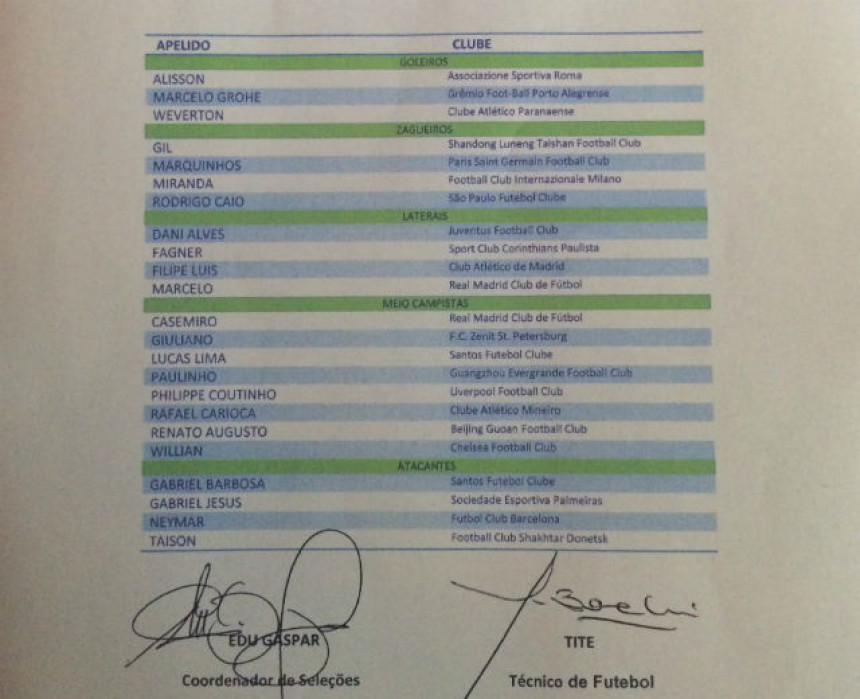 APELIDO CLUBE
GOLEIROS
ALISSON Associazione Sportiva Roma
MARCELO GROHE Grêmio Foot-Ball Porto Alegrense
WEVERTON Clube Atlético Paranaense
ZAGUEIROS
GIL Shandong Luneng Taishan Football Club
MARQUINHOS Paris Saint Germain Football Club
MIRANDA Football Club Internazionale Milano
RODRIGO CAIO São Paulo Futebol Clube
LATERAIS
DANI ALVES Juventus Football Club
FAGNER Sport Club Corinthians Paulista
FILIPE LUIS Club Atlético de Madrid
MARCELO Real Madrid Club de Fútbol
MEIO CAMPISTAS
CASEMIRO Real Madrid Club de Fútbol
GIULIANO F.C. Zenit St. Petersburg
LUCAS LIMA Santos Futebol Clube
PAULINHO Guangzhou Evergrande Football Club
PHILIPPE COUTINHO Liverpool Football Club
RAFAEL CARIOCA Clube Atlético Mineiro
RENATO AUGUSTO Beijing Guoan Football Club
WILLIAN Chelsea Football Club
ATACANTES
GABRIEL BARBOSA Santos Futebol Clube
GABRIEL JESUS Sociedade Esportiva Palmeiras
NEYMAR Futbol Club Barcelona
TAISON Football Club Shakhtar Donetsk
EDU GASPAR TITE
Coordenador de Seleções Técnico de Futebol